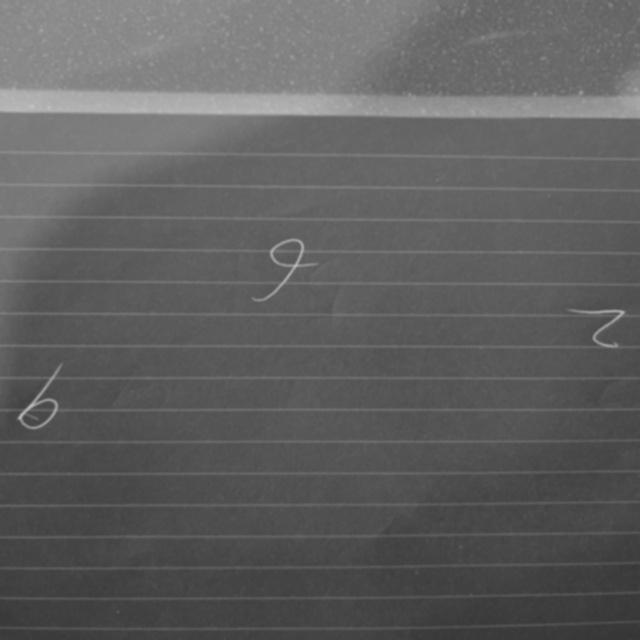 9
2
6